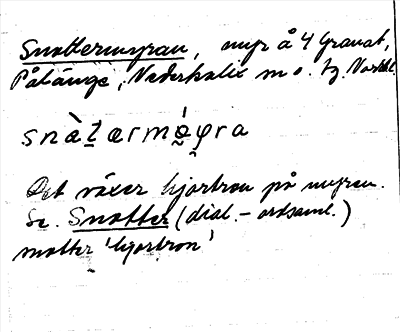 Snottermyran, myr å 4 Granat,
Påläng, Nederkalix m o. tg. Norrb.
snàt̠ærmǿ̠φ̯ra
Det växer hjortron på myren.
Se. Snotter (dial.-ordsaml.)
snotter 'hjortron'